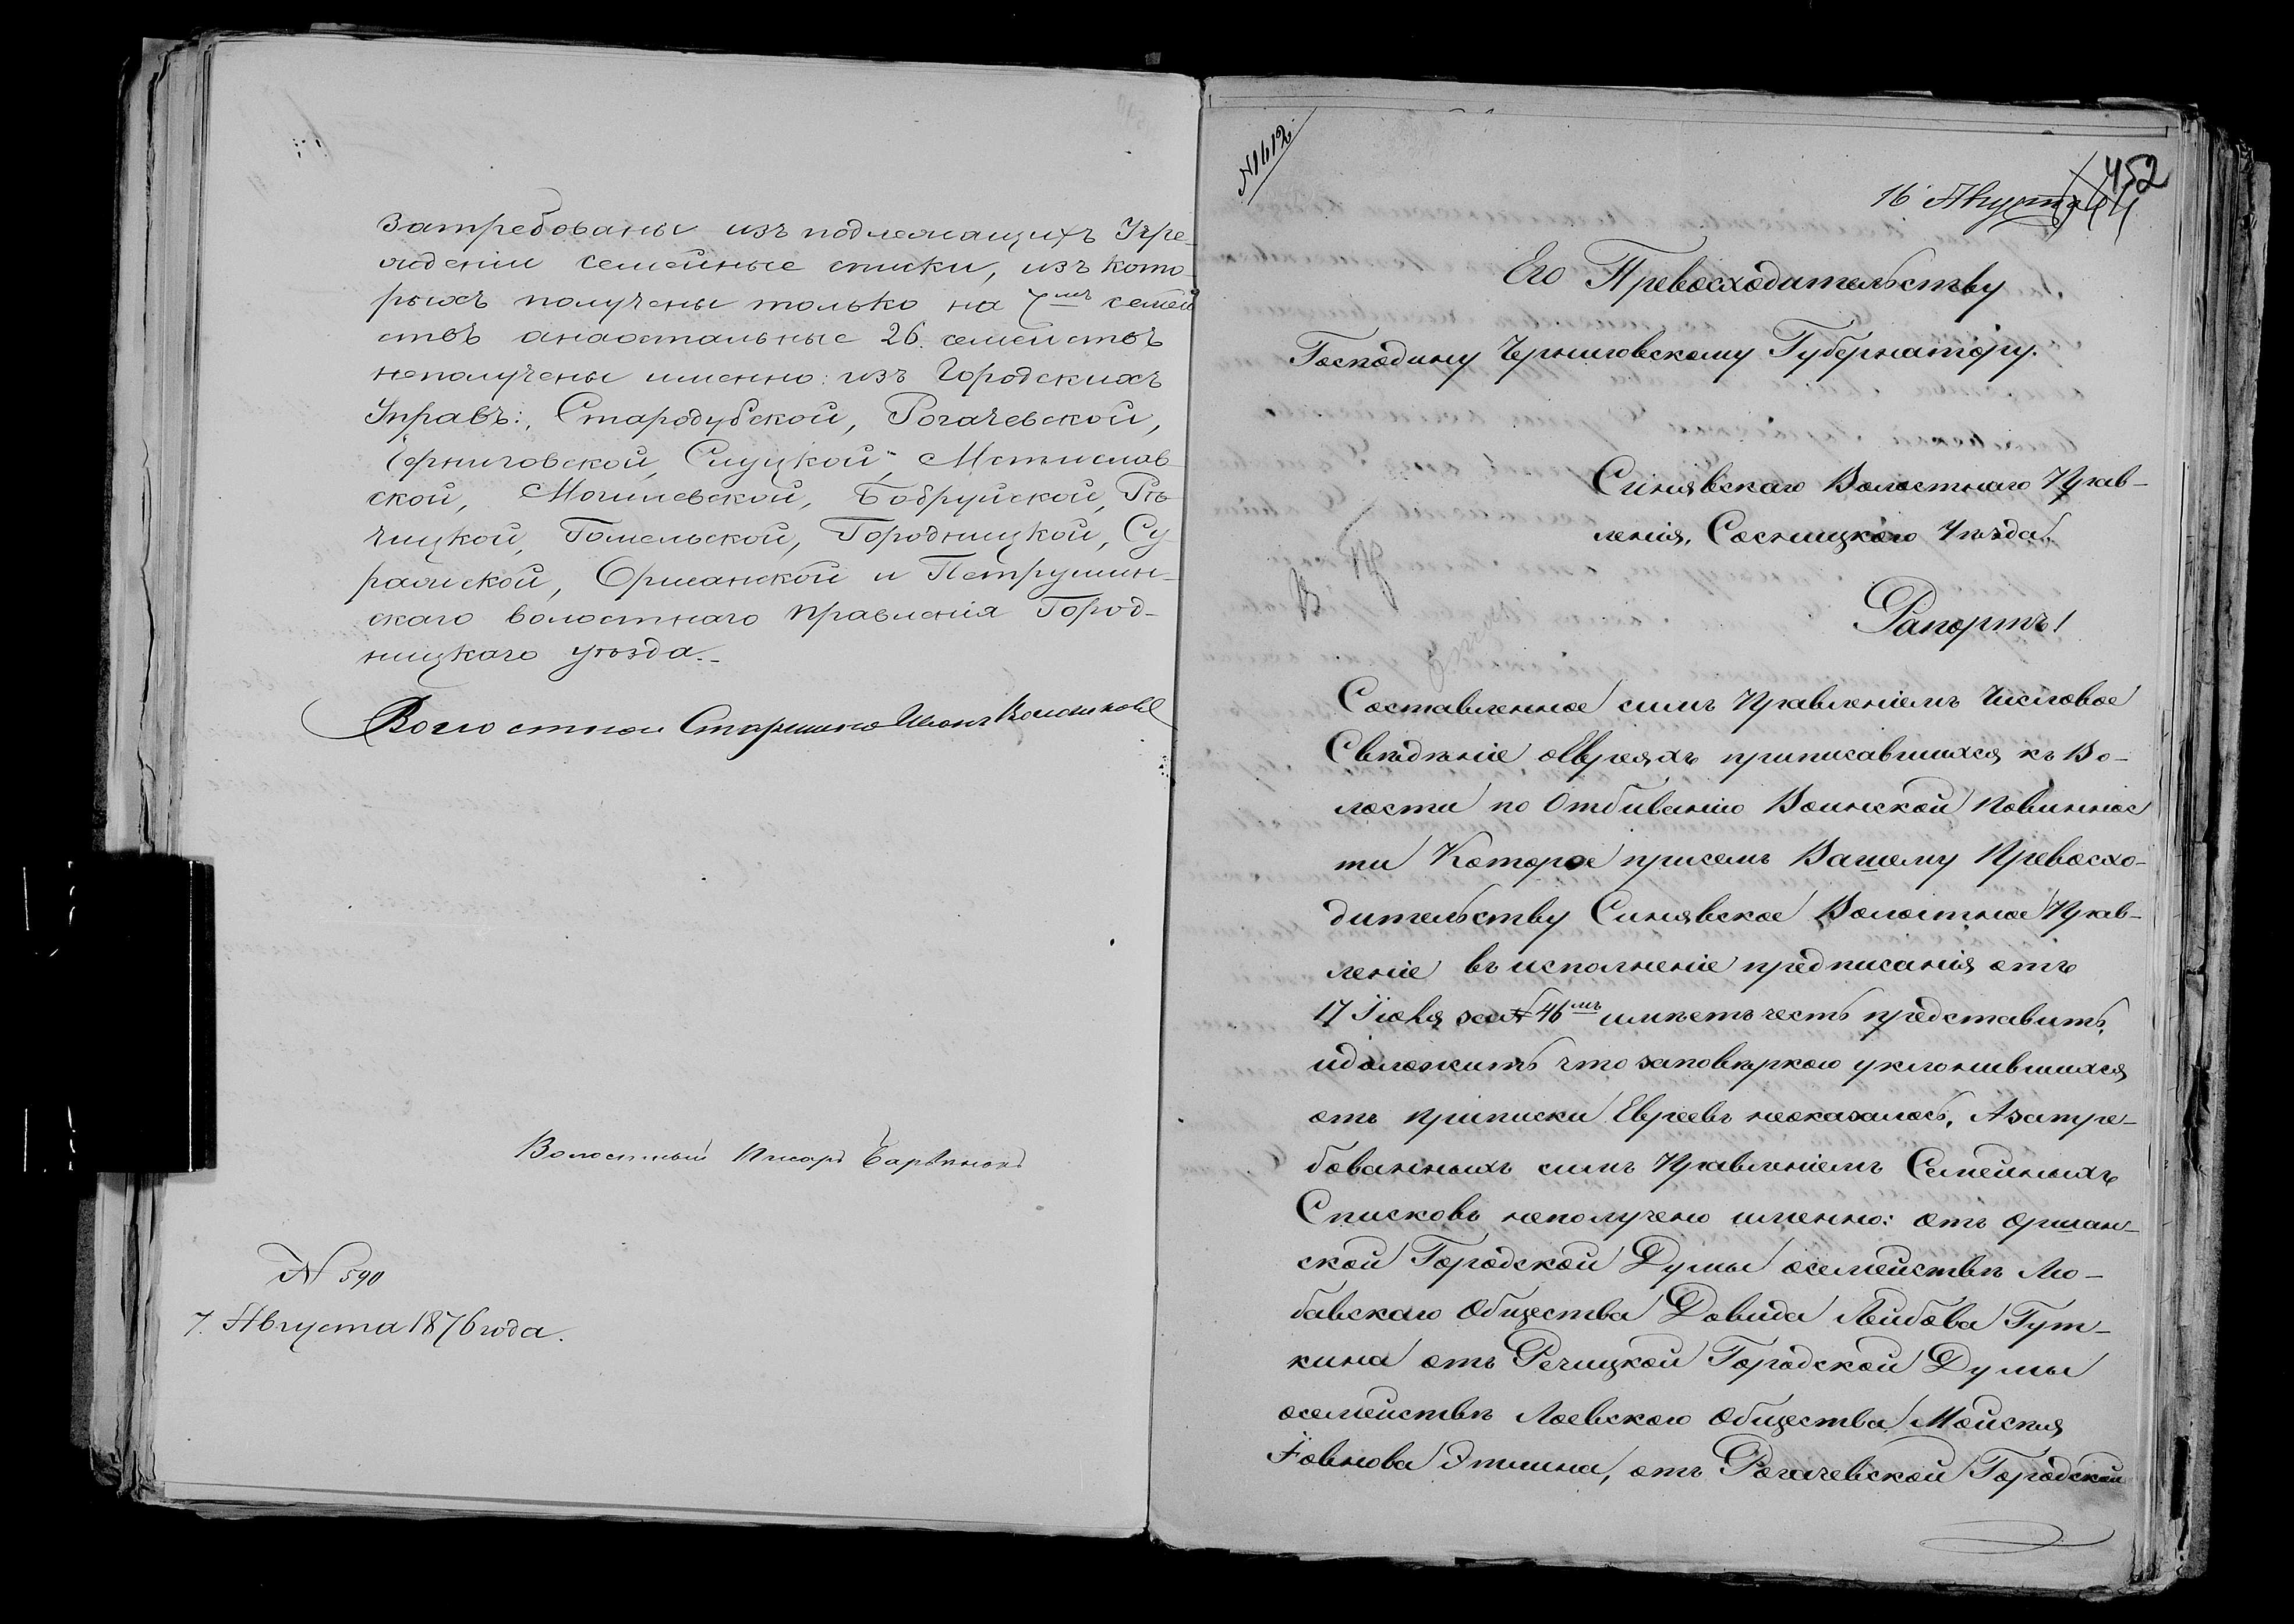 затребованы изъ подлежащихъ Учре-
жденiи семейные списки, изъ кото-
рыхъ получены только на 7мъ семей
ствъ анаостальные 26. семействъ
неполучены именно: изъ Городскихъ
Управъ:, Стародубской, Рогачевской,
Черниговской, Слуцкой, Мстислав-
ской, Могилевской, Бобруйской, Рѣ-
чицкой, Гомельской, Городницкой, Су
ражской, Оршанской и Петрушин-
скаго волостнаго правленія Город-
ницкаго уѣзда.-
Волостной Старшина Иванъ
Волостный Писарь
N 590
7. Августа 1876 года.
N1612.
452
16 Августа
Его Превосходительству
Господину Черниговскому Губернатору.
Синявскаго Волостнаго Прав-
ленія, Сосницкаго Уѣзда.
Рапортъ!
Составленное симъ Правленіемъ Числовое
Свѣдѣніе оЕвреяхъ приписавшихся къ Во-
лости по Отбиванію Воинской Повиннос
ти Которое присемъ Вашему Превосхо-
дительству Синявское Волостное Прав-
леніе въ исполненіе предписанія отъ
17 Іюня за N 46мъ имѣетъ честь представить,
идоложить что заповѣркою уклонившихся
отъ приписки Евреевъ неоказалось, Азатре-
бованныхъ симъ Правленіемъ Семейныхъ
Списковъ неполучено именно: отъ Оршан-
ской Городской Думы осемействѣ Лю-
бавскаго Общества Довида Лейбова Гут-
кина отъ Речицкой Городской Думы
осемействѣ Лоевскаго Общества Мойсѣя
Іовнова Этлина, отъ Рогачевской Городской